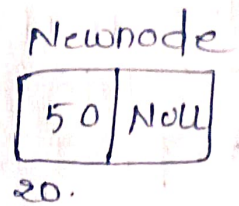 Newnode
50 Null
20.